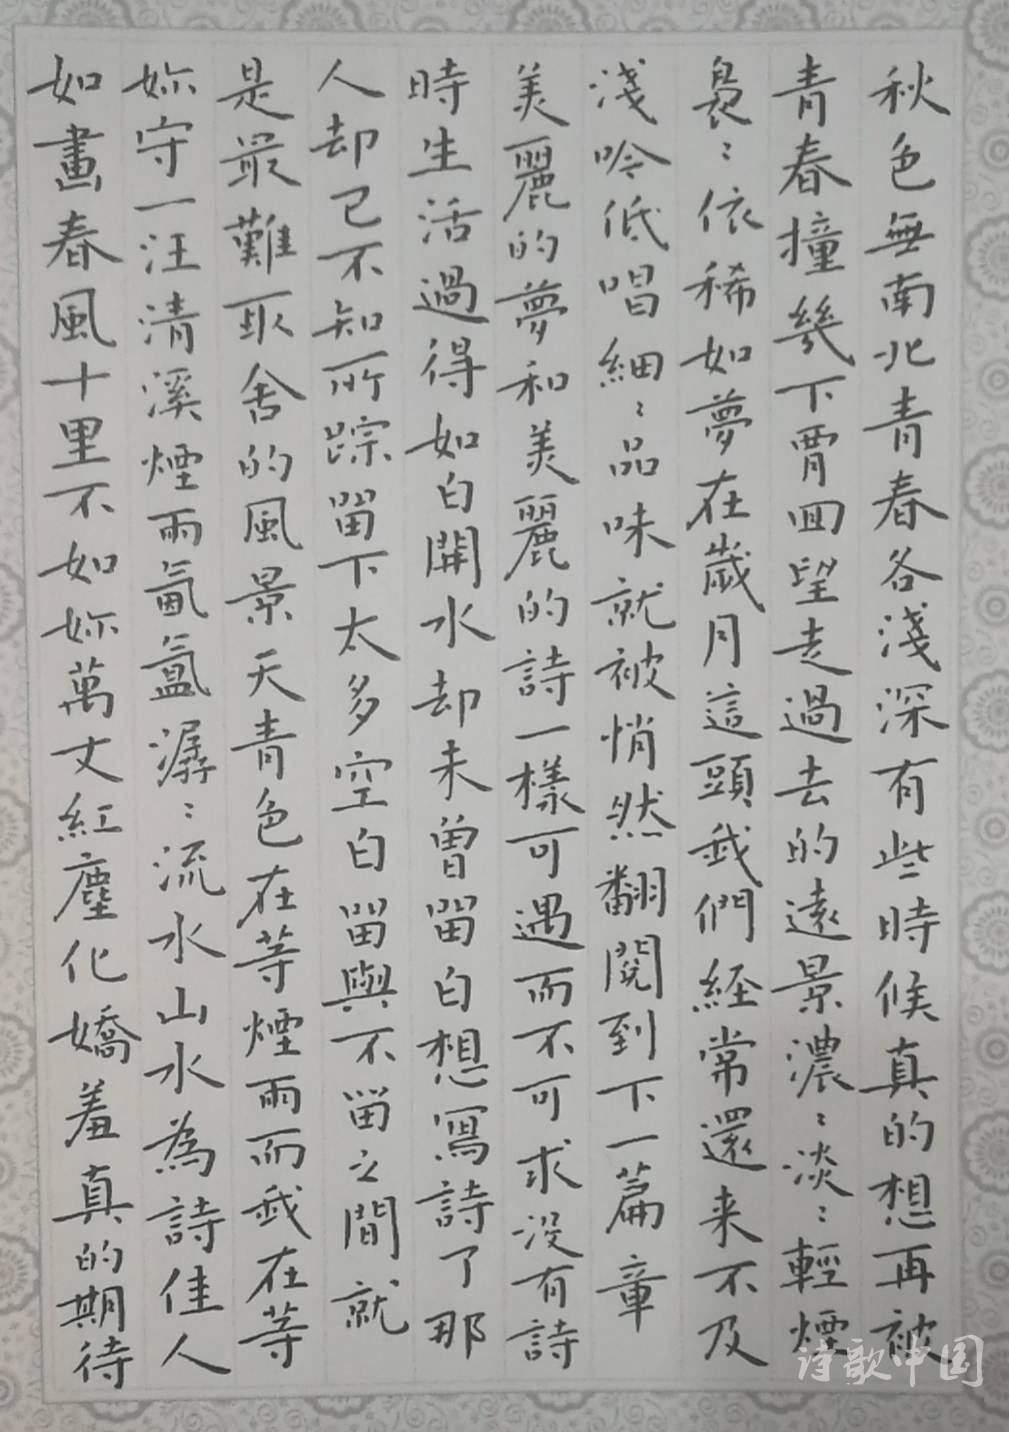 秋色無南北青春各淺深有些時候真的想再被
青春撞幾下賈回望走過去的遠景濃〻淡〻輕煙
裊〻依稀如夢在歲月這頭我們経常還来不及
淺吟低唱細〻品味就被悄然翻閱到下一篇章
美麗的夢和美麗的詩一樣可遇而不可求没有詩
時生活過得如白開水却未曾留白想寫詩了那
人却已不知所踪留下太多空白留與不留之間就
是最難取舍的風景天青色在等煙雨而我在等
妳守一汪清溪煙雨氤氳潺〻流水山水為詩佳人
如畫春風十里不如妳萬丈紅塵化嬌羞真的期待
诗歌中国